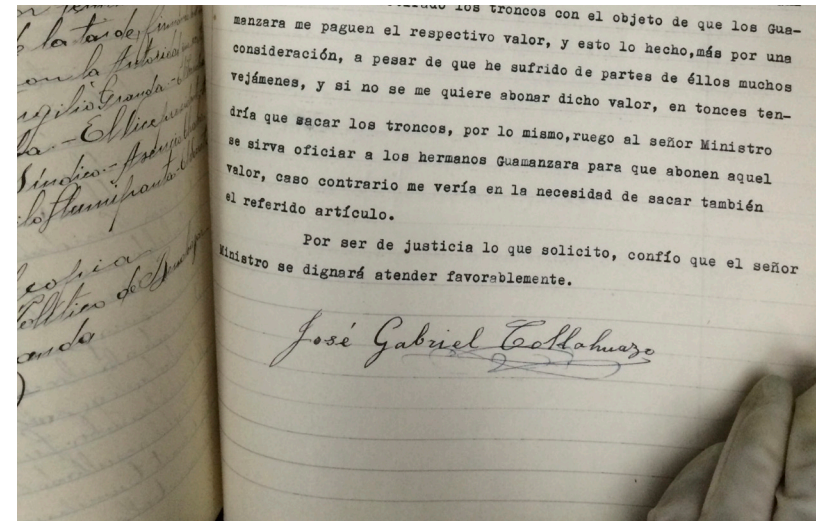 los troncos con el objeto de que los Gua-
manzara me paguen el respectivo valor, y esto lo hecho,más por una
consideración, a pesar de que he sufrido de partes de éllos muchos
vejámenes, y si no se me quiere abonar dicho valor, en tonces ten-
dría que sacar los troncos, por lo mismo,ruego al señor Ministro
se sirva oficiar a los hermanos Guamanzara para que abonen aquel
valor, caso contrario me vería en la necesidad de sacar también
el referido artículo.
Por ser de justicia lo que solicito, confío que el señor
Ministro se dignará atender favorablemente.
José Gabriel Collahuazo
la tarde,
con la
Granda
Síndico
copia
Político de